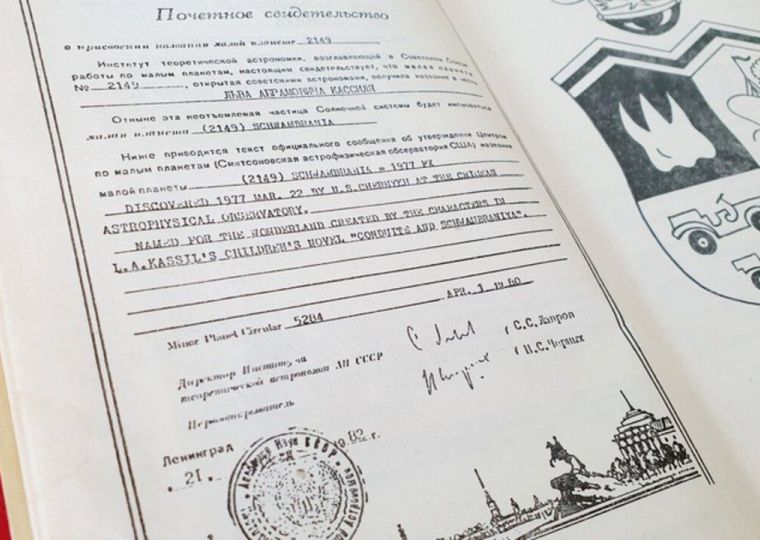 Почетное свидетельство
о присвоении названия малой планете 2149
Институт теоретической астрономии, возглавляющий в Советском Союзе
работы по малым планетам, настоящим свидетельствует, что малая планета
№ 2149, открытая советскими астрономами, получила название в честь
ЛЬВА АБРАМОВИЧА КАССИЛЯ
Отныне эта неотъемлемая частица Солнечной системы будет именоваться
малая планета (2149) SCHWAMBRANIA
Ниже приводится текст официального сообщения об утверждении Центром
по малым планетам (Смитсоновская астрофизическая обсерватория США) названия
малой планеты (2149) SCHWAMBRANIA = 1977 FX
DISCOVERED 1977 MAR. 22 BY N.S.CHERNYKH AT THE CRIMEAN
ASTROPHYSICAL OBSERVATORY.
NAMED FOR THE WONDERLAND CREATED BY THE CHARACTERS IN
L.A.KASSIL'S CHILDREN'S NOVEL "CONDUITE AND SCHWAMBRANIYA".
Minor Planet Circular 5284 APR. 1 1980
Директор Института
теоретической астрономии АН СССР ( С.С. Лавров
Первооткрыватель ( Н.С. Черных
Ленинград
"21" 1982 г.
Академия Наук СССР